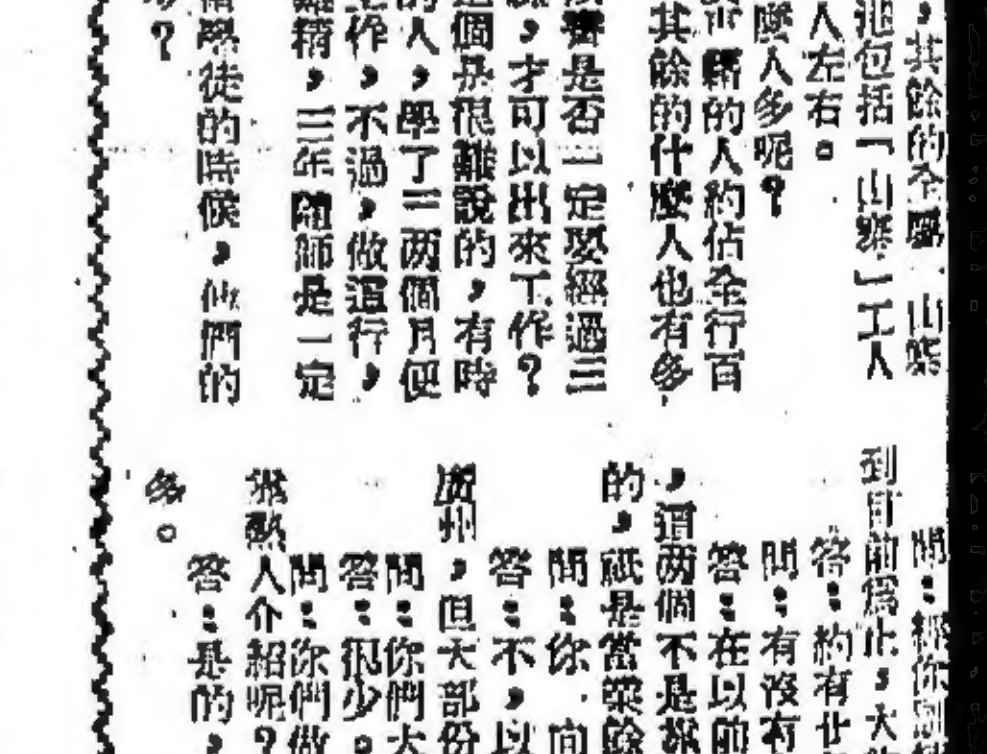 ，其餘的全屬 山寨
池包括「山寨」工人
人左右。
麼人多呢？
的人約佔全行百
其餘的什麼人也有多
是否一定要經過三
，才可以出來工作？
這個是很難說的，有時
的人，學了三两個月便
工作，不過，做這行，
精，三年隨師是一定
學徒的時候，他們的
？
問：經你
到目前爲止，大
答：約有廿
問：有沒有
答：在以前
，這两個不是
的，祇是當業餘
問：你 向
答：不，以
廣州，但大部份
問：你們大
答：很少。
問：你們做
熟人介紹呢？
答：是的，
多。